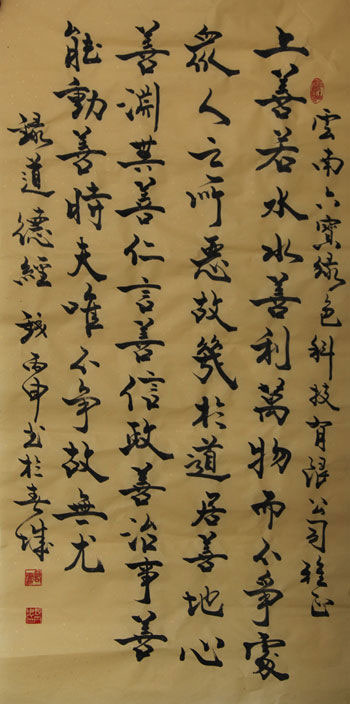 雲南六寶綠色科技有限公司雅正
上善若水水善利萬物而不爭處
眾人之所惡故幾於道居善地心
善淵其善仁言善信政善治事善
能動善時夫唯不爭故無尤
錄道德經 歲丙申書於春城